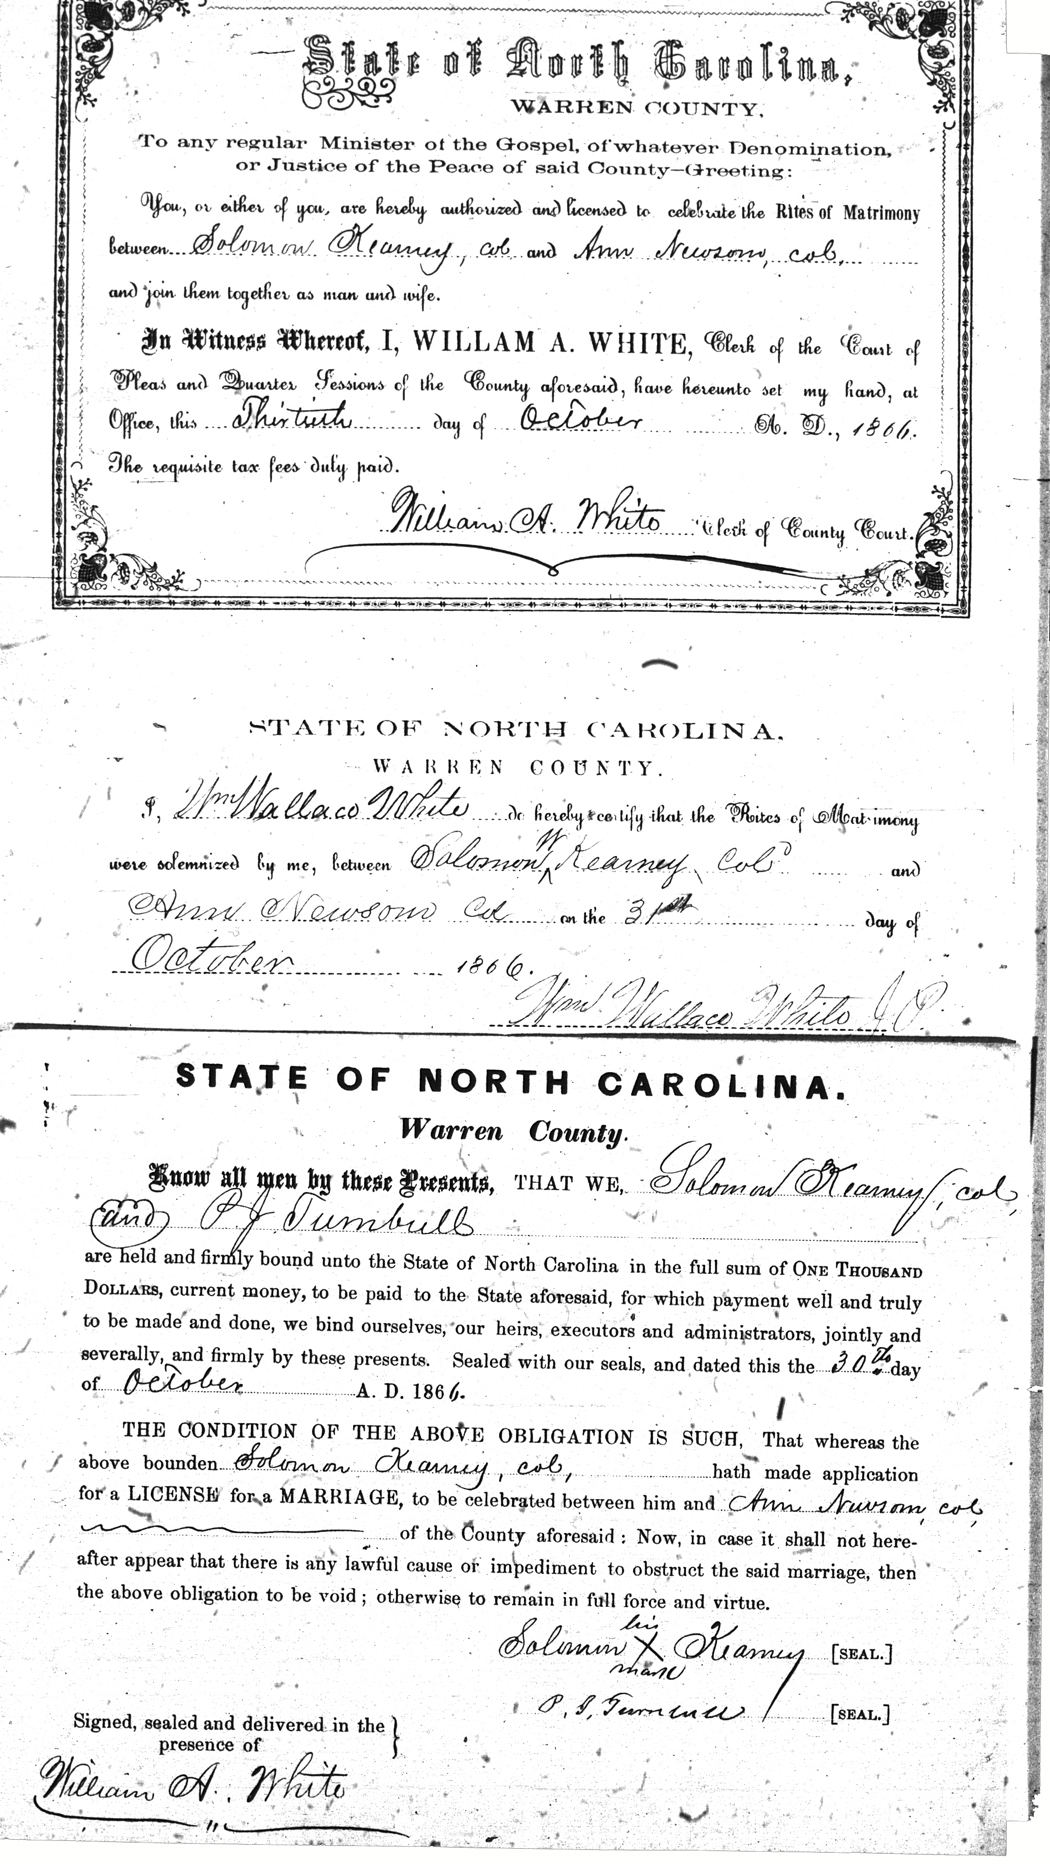 State of North Carolina,
WARREN COUNTY.
To any regular Minister of the Gospel, of whatever Denomination,
or Justice of the Peace of said County—Greeting:
You, or either of you, are hereby authorized and licensed to celebrate the Rites of Matrimony
between Solomon Kearney, col and Ann Newsom, col.
and join them together as man and wife.
In Witness Whereof, I, WILLAM A. WHITE, Clerk of the Court of
Pleas and Quarter Sessions of the County aforesaid, have hereunto set my hand, at
Office, this Thirtieth day of October A. D., 1866.
The requisite tax fees duly paid.
William A. White Clerk of County Court.
STATE OF NORTH CAROLINA,
WARREN COUNTY.
I, Wm Wallace White do hereby certify that the Rites of Matrimony
were solemnized by me, between Solomon W Kearney Cold and
Ann Newsom Col on the 31st day of
October 1866.
Wm Wallace White J P.
STATE OF NORTH CAROLINA.
Warren County.
Know all men by these Presents, THAT WE, Solomon Kearney, col,
and P J Turnbull
are held and firmly bound unto the State of North Carolina in the full sum of ONE THOUSAND
DOLLARS, current money, to be paid to the State aforesaid, for which payment well and truly
to be made and done, we bind ourselves, our heirs, executors and administrators, jointly and
severally, and firmly by these presents. Sealed with our seals, and dated this the 30th day
of October A. D. 1866.
THE CONDITION OF THE ABOVE OBLIGATION IS SUCH, That whereas the
above bounden Solomon Kearney, col, hath made application
for a LICENSE for a MARRIAGE, to be celebrated between him and Ann Newsom, col,
of the County aforesaid: Now, in case it shall not here-
after appear that there is any lawful cause or impediment to obstruct the said marriage, then
the above obligation to be void; otherwise to remain in full force and virtue.
his
Solomon X Kearney [SEAL.]
mark
P. J. Turnbull [SEAL.]
Signed, sealed and delivered in the
presence of
William A. White